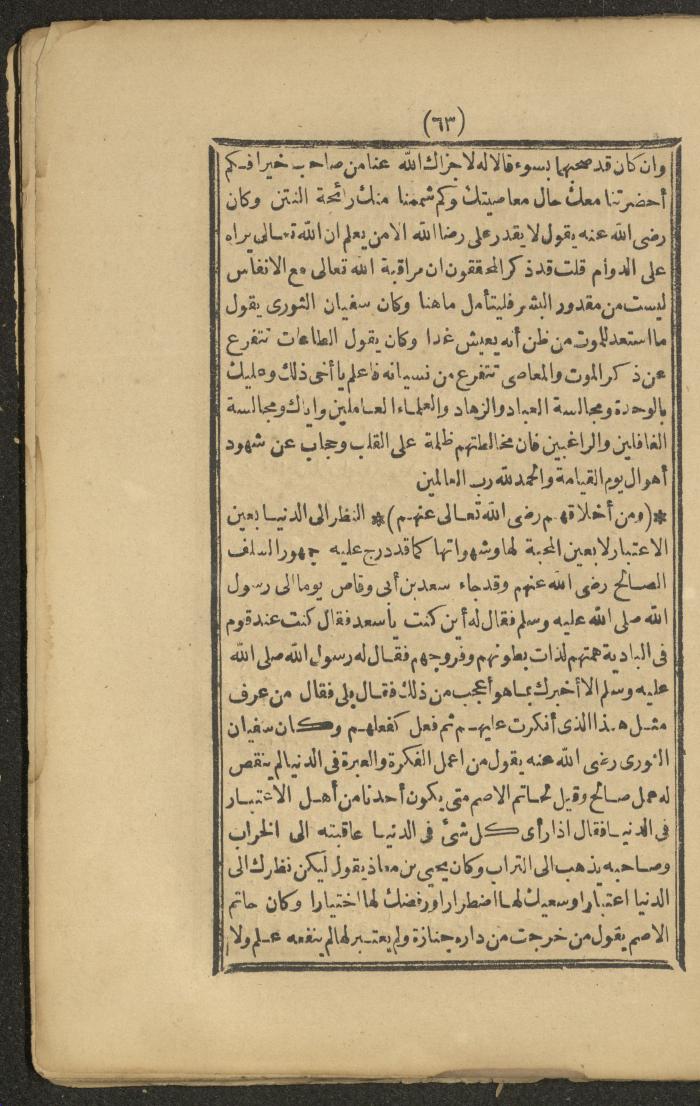 (٦٣)
وان كان قد صحبهما بسوء قالا له لا جزاك الله عنا من صاحب خيرا فكم
أحضرتنا معك حال معاصيتك وكم شممنا منك رائحة النتن وكان
رضى الله عنه يقول لا يقدر على رضا الله الا من يعلم ان الله تعالى يراه
على الدوام قلت قد ذكر المحققون ان مراقبة الله تعالى مع الانفاس
ليست من مقدور البشر فليتأمل ما هنا وكان سفيان الثورى يقول
ما استعد للموت من ظن أنه يعيش غدا وكان يقول الطاعات تتفرع
عن ذكر الموت والمعاصى تتفرع من نسيانه فاعلم يا أخى ذلك وعليك
بالوحدة ومجالسة العباد والزهاد والعلماء العاملين واياك ومجالسة
الغافلين والراغبين فان مخالطتهم ظلمة على القلب وحجاب عن شهود
أهوال يوم القيامة والحمد لله رب العالمين
*(ومن أخلاقهم رضى الله تعالى عنهم)* النظر الى الدنيا بعين
الاعتبار لا بعين المحبة لها وشهواتها كما قد درج عليه جمهور السلف
الصالح رضى الله عنهم وقد جاء سعد بن أبى وقاص يوما الى رسول
الله صلى الله عليه وسلم فقال له أين كنت يا سعد فقال كنت عند قوم
فى البادية همتهم لذات بطونهم وفروجهم فقال له رسول الله صلى الله
عليه وسلم الا أخبرك بما هو أعجب من ذلك فقال بلى فقال من عرف
مثل هذا الذى أنكرت عليهم ثم فعل كفعلهم وكان سفيان
الثورى رضى الله عنه يقول من اعمل الفكرة والعبرة فى الدنيا لم ينقص
له عمل صالح وقيل لحاتم الاصم متى يكون أحدنا من أهل الاعتبار
فى الدنيا فقال اذا رأى كل شئ فى الدنيا عاقبته الى الخراب
وصاحبه يذهب الى التراب وكان يحيى بن معاذ يقول ليكن نظرك الى
الدنيا اعتبارا وسعيك لها اضطرارا ورفضك لها اختيارا وكان حاتم
الاصم يقول من خرجت من داره جنازة ولم يعتبر لها لم ينفعه علم ولا